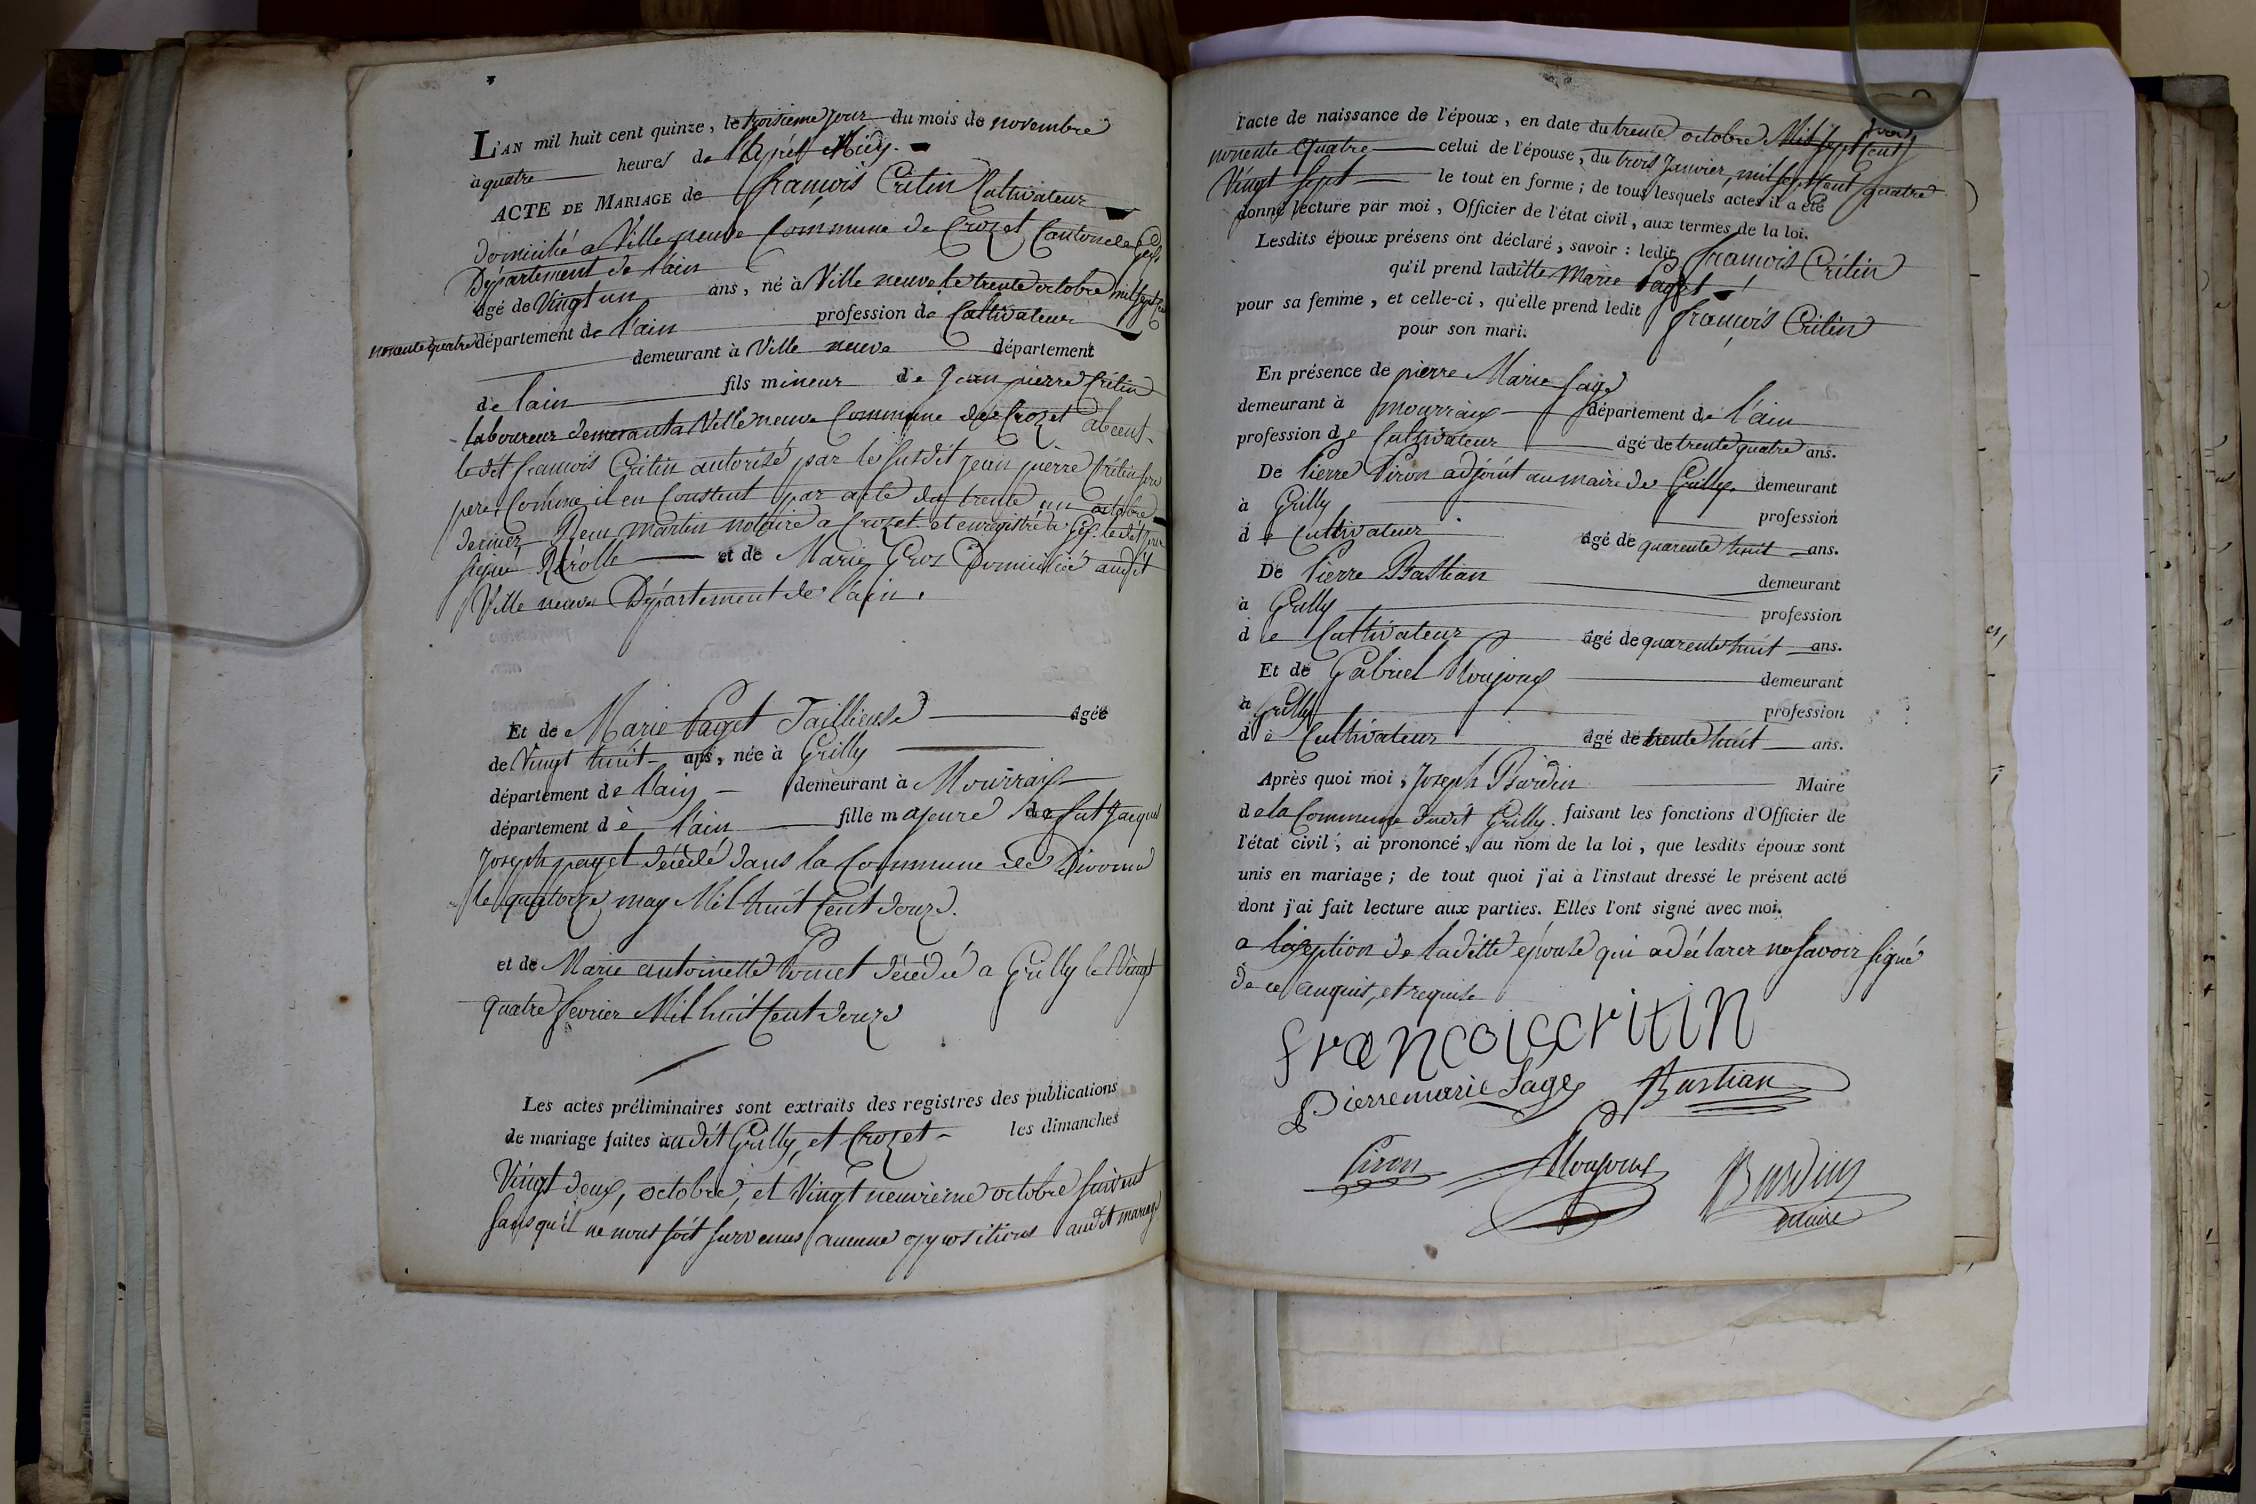 L'AN mil huit cent quinze, le troisieme jour du mois de novembre
à quatre heures de l'Aprés Midy.
ACTE DE MARIAGE de françois Critin Cultivateur
domicilié a Ville neuve Commune de Crozet Canton de Gex
Département de l'ain
âgé de Vingt un ans, né à Ville neuve le trente octobre mil sept cent
nonente quatre département de l'ain profession de Cultivateur
demeurant à Ville neuve département
de lain fils mineur de Jean pierre Critin
laboureur demeurant a Ville neuve Commune de Crozet abcent
le dit francois Critin autorisé par le susdit jean pierre Critin son
pere, Comme il en Constent par acte du trente un octobre
dernier Reçu Martin notaire a Crozet et enregistré a Gex le dit jour
signé Rérolle et de Marie Gros Domiciliée audit
Ville neuve Département de l'ain.
Et de Marie Paget Taillieuse âgée
de Vingt huit ans, née à Grilly
département de l'ain demeurant à Mourraix
département de l'ain fille majeure de fut Jacque
Joseph paget décédé dans la Commune de Divonne
le quatorze may Mil huit Cent douze.
et de Marie antoinette Pomet décédée a Grilly le Vingt
quatre fevrier Mil huit Cent douze
Les actes préliminaires sont extraits des registres des publications
de mariage faites audit Grilly, et Crozet les dimanches
Vingt deux, octobre, et Vingt neuvieme octobre suivent
sans qu'il ne nous soit survenus aucune oppositions audit mariage
l'acte de naissance de l'époux, en date du trente octobre Mil sept Cent
nonente Quatre celui de l'épouse, du trois Janvier, mil sept Cent quatre
Vingt sept le tout en forme; de tous lesquels actes il a été
donné lecture par moi, Officier de l'état civil, aux termes de la loi.
Lesdits époux présens ont déclaré, savoir: ledit françois Critin
qu'il prend laditte Marie Paget
pour sa femme, et celle-ci, qu'elle prend ledit françois Critin
pour son mari.
En présence de pierre Marie Sage
demeurant à mourraix département de l'ain
profession de Cultivateur âgé de trente quatre ans.
De Pierre Piron adjoint au maire de Grilly demeurant
à Grilly profession
de Cultivateur âgé de quarente huit ans.
De Pierre Bastian demeurant
à Grilly profession
de Cultivateur âgé de quarente huit ans.
Et de Gabriel Monjoux demeurant
à Grilly profession
de Cultivateur âgé de trente huit ans.
Après quoi moi, Joseph Bardin Maire
de la Commune dudit Grilly faisant les fonctions d'Officier de
l'état civil, ai prononcé, au nom de la loi, que lesdits époux sont
unis en mariage; de tout quoi j'ai à l'instaut dressé le présent acte
dont j'ai fait lecture aux parties. Elles l'ont signé avec moi.
a l'exeption de laditte épouse qui a déclarer ne savoir signé
de ce enquis, et requise
francois critin
Pierre marie Sage Bastian
Piron Monjoux Bardin
maire